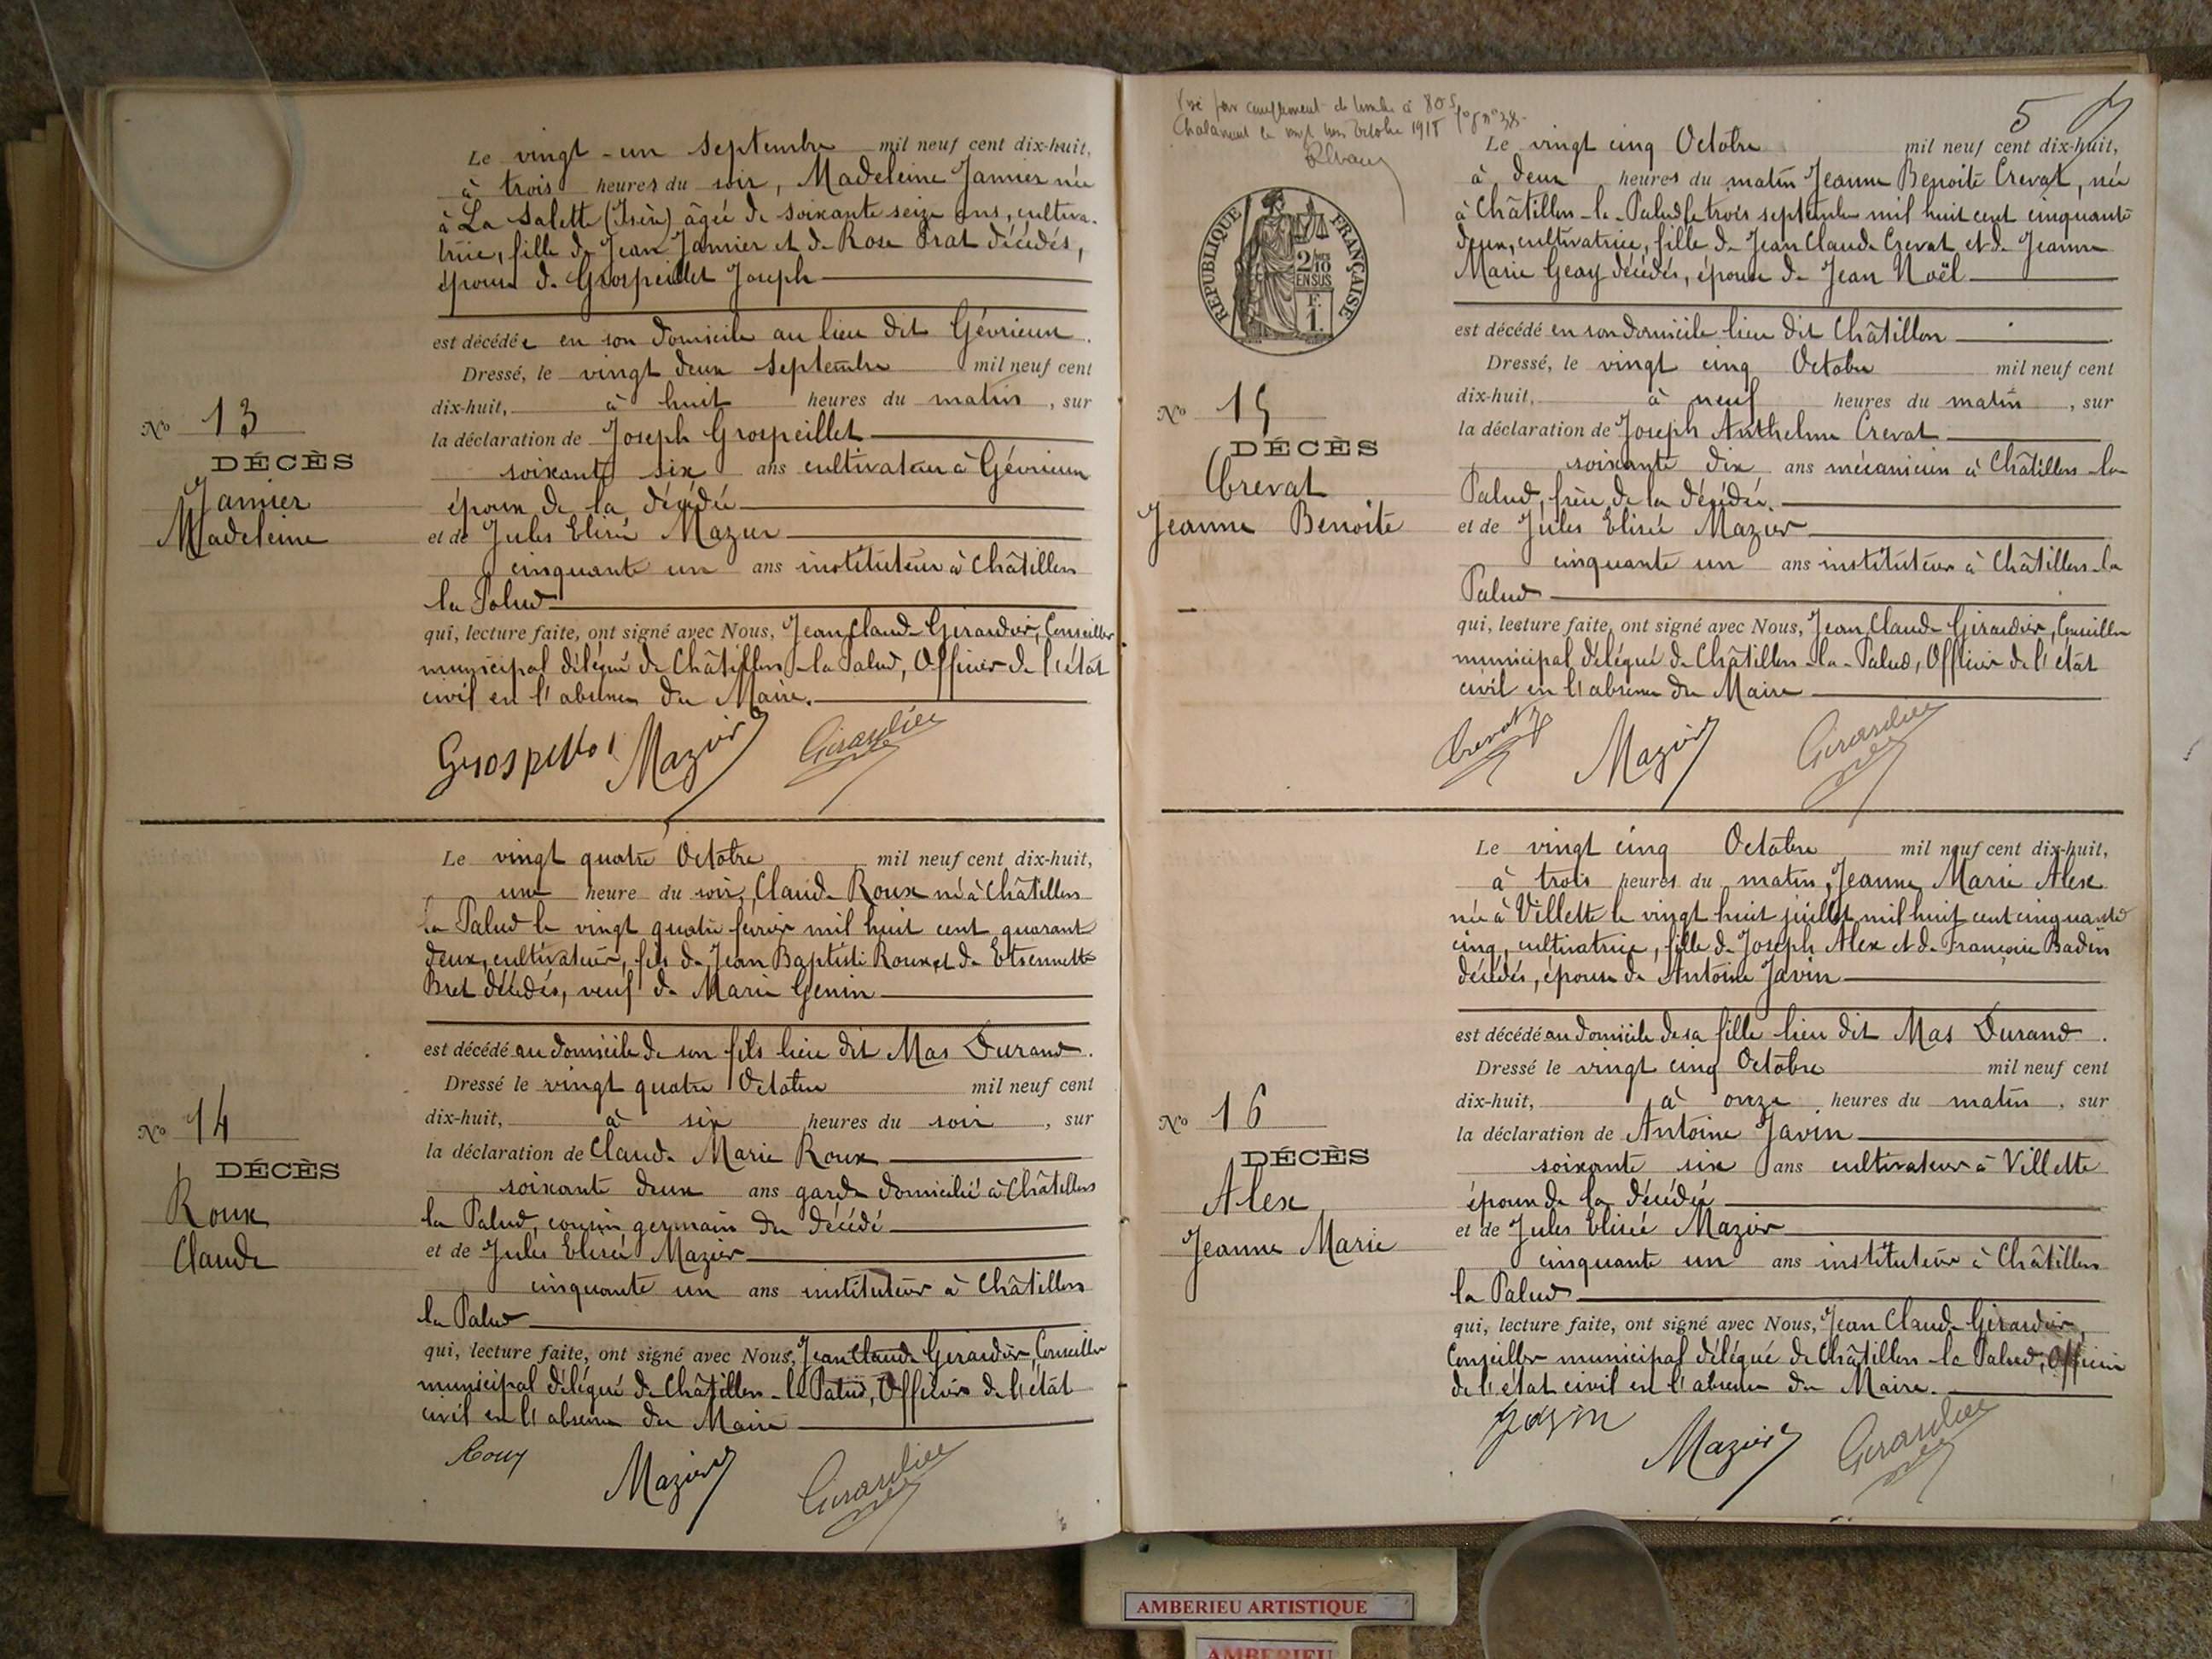 Le vingt-un Septembre mil neuf cent dix-huit,
à trois heures du soir, Madeleine Jannier née
à La Salette (Isère) âgée de soixante seize ans, cultiva-
trice, fille de Jean Jannier et de Rose Prat décédés,
épouse de Grospeillet Joseph
est décédée en son domicile au lieu dit Gévrieux.
Dressé, le vingt deux Septembre mil neuf cent
dix-huit, à huit heures du matin, sur
la déclaration de Joseph Grospeillet
soixante six ans cultivateur à Gévrieux
époux de la décédée
et de Jules Elisée Mazuer
cinquante un ans instituteur à Châtillon
la Palud
qui, lecture faite, ont signé avec Nous, Jean Claude Girardier, Conseiller
municipal délégué de Châtillon-la Palud, Officier de l'état
civil en l'absence du Maire.
Mazuer Girardier
No 13
DÉCÈS
Jannier
Madeleine
Le vingt quatre Octobre mil neuf cent dix-huit,
une heure du soir, Claude Roux né à Châtillon
la Palud le vingt quatre février mil huit cent quarante
deux, cultivateur, fils de Jean Baptiste Roux et de Etiennette
Bret décédés, veuf de Marie Genin
est décédé au domicile de son fils lieu dit Mas Durand.
Dressé le vingt quatre Octobre mil neuf cent
dix-huit, à six heures du soir, sur
la déclaration de Claude Marie Roux
soixante deux ans garde domicilié à Châtillon
la Palud, cousin germain du décédé
et de Jules Elisée Mazuer
cinquante un ans instituteur à Châtillon
la Palud
qui, lecture faite, ont signé avec Nous, Jean Claude Girardier, Conseiller
municipal délégué de Châtillon-la Palud, Officier de l'état
civil en l'absence du Maire
Roux Mazuer Girardier
No 14
DÉCÈS
Roux
Claude
5
RÉPUBLIQUE FRANÇAISE
2/10
EN SUS
F.
1.
Le vingt cinq Octobre mil neuf cent dix-huit,
à deux heures du matin Jeanne Benoite Crevat, née
à Châtillon-la-Palud le trois septembre mil huit cent cinquante
deux, cultivatrice, fille de Jean Claude Crevat et de Jeanne
Marie Geay décédés, épouse de Jean Noël
est décédé en son domicile lieu dit Châtillon
Dressé, le vingt cinq Octobre mil neuf cent
dix-huit, à neuf heures du matin, sur
la déclaration de Joseph Anthelme Crevat
soixante dix ans mécanicien à Châtillon-la
Palud, frère de la décédée.
et de Jules Elisée Mazuer
cinquante un ans instituteur à Châtillon-la
Palud
qui, lecture faite, ont signé avec Nous, Jean Claude Girardier, Conseiller
municipal délégué de Châtillon-la-Palud, Officier de l'état
civil en l'absence du Maire
Crevat Mazuer Girardier
No 15
DÉCÈS
Crevat
Jeanne Benoite
Le vingt cinq Octobre mil neuf cent dix-huit,
à trois heures du matin, Jeanne Marie Alex
née à Villette le vingt huit juillet mil huit cent cinquante
cinq, cultivatrice, fille de Joseph Alex et de Françoise Badin
décédés, épouse de Antoine Javin
est décédé au domicile de sa fille lieu dit Mas Durand.
Dressé le vingt cinq Octobre mil neuf cent
dix-huit, à onze heures du matin, sur
la déclaration de Antoine Javin
soixante six ans cultivateur à Villette
époux de la décédée
et de Jules Elisée Mazuer
cinquante un ans instituteur à Châtillon
la Palud
qui, lecture faite, ont signé avec Nous, Jean Claude Girardier,
Conseiller municipal délégué de Châtillon-la Palud, Officier
de l'état civil en l'absence du Maire.
Javin Mazuer Girardier
No 16
DÉCÈS
Alex
Jeanne Marie
AMBERIEU ARTISTIQUE
AMBERIEU